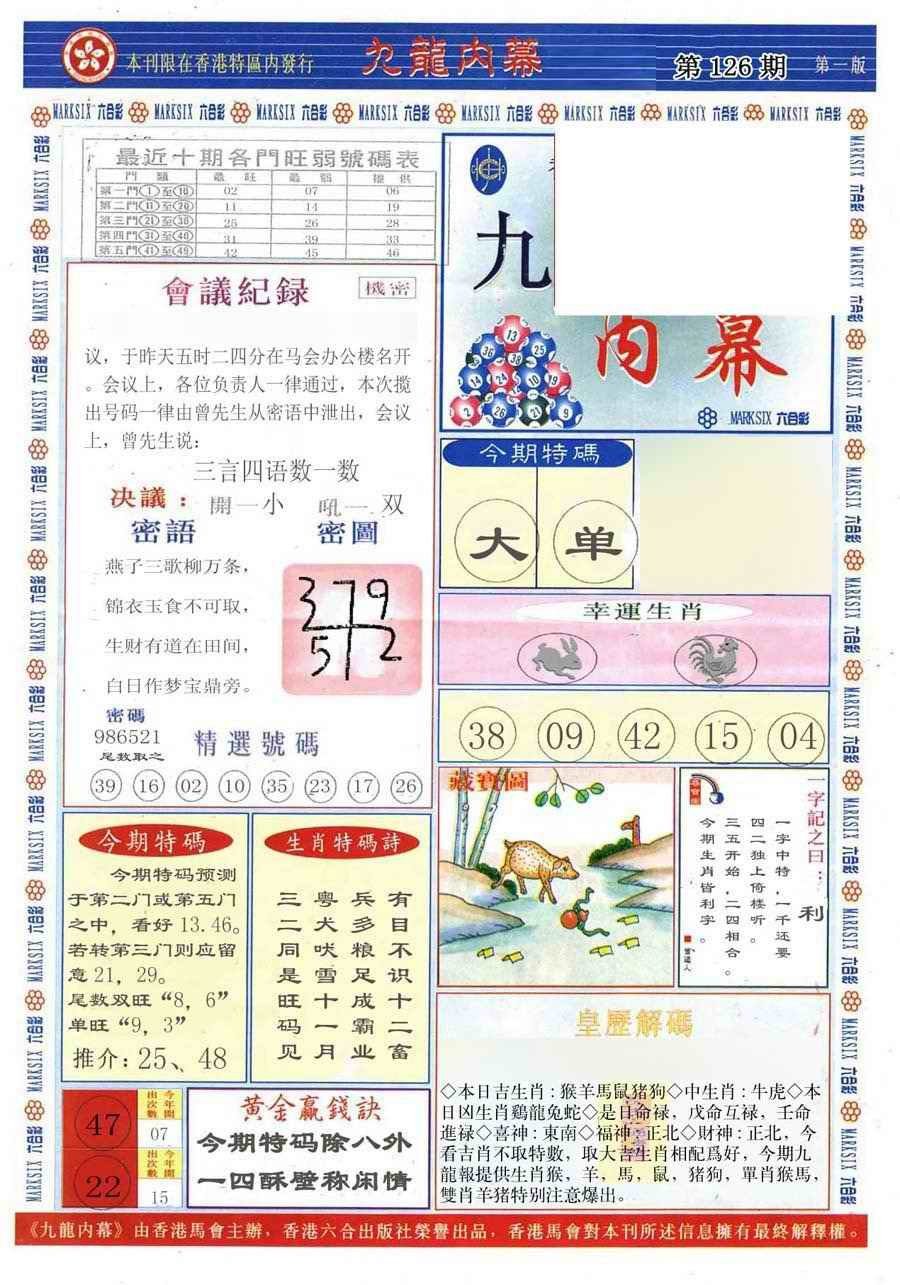 本刊限在香港特區内發行
九龍内幕
第 126 期
第一版
MARKSIX 六合彩 MARKSIX 六合彩 MARKSIX 六合彩 MARKSIX 六合彩 MARKSIX 六合彩 MARKSIX 六合彩 MARKSIX 六合彩 MARKSIX 六合彩
最近十期各門旺弱號碼表
門 類 最 旺 最 弱 提 供
第一門①至⑩ 02 07 06
第二門⑪至⑳ 11 14 19
第三門㉑至㉚ 25 26 28
第四門㉛至㊵ 31 39 33
第五門㊶至㊾ 42 45 46
會議紀録
機密
议，于昨天五时二四分在马会办公楼名开
。会议上，各位负责人一律通过，本次揽
出号码一律由曾先生从密语中泄出，会议
上，曾先生说：
三言四语数一数
决議：開一小 吼一双
密語 密圖
燕子三歌柳万条，
锦衣玉食不可取，
生财有道在田间，
白日作梦宝鼎旁。
3 7 9
5 2
密碼
986521
尾数取之
精選號碼
39 16 02 10 35 23 17 26
九
内幕
13
36 38 25
14 24 10 19
2 26 21 9
MARKSIX 六合彩
今期特碼
大 单
幸運生肖
38 09 42 15 04
藏寶圖
一字記之曰：利
一字中特，一千还要
四二独上倚楼听。
三五开始，二四相合。
今期生肖皆利字。
今期特碼
今期特码预测
于第二门或第五门
之中，看好 13.46。
若转第三门则应留
意 21，29。
尾数双旺“8，6”
单旺“9，3”
推介：25、48
生肖特碼詩
有目不识十二畜
兵多粮足成霸业
粤犬吠雪十一月
三二同是旺码见
47
今年開出次數
07
22
今年開出次數
15
黄金贏錢訣
今期特码除八外
一四酥壁称闲情
皇歷解碼
◇本日吉生肖：猴羊馬鼠猪狗◇中生肖：牛虎◇本
日凶生肖鷄龍兔蛇◇是日命禄，戊命互禄，壬命
進禄◇喜神：東南◇福神：正北◇財神：正北，今
看吉肖不取特數，取大吉生肖相配爲好，今期九
龍報提供生肖猴，羊，馬，鼠，猪狗，單肖猴馬，
雙肖羊猪特别注意爆出。
《九龍内幕》由香港馬會主辦，香港六合出版社榮譽出品，香港馬會對本刊所述信息擁有最終解釋權。